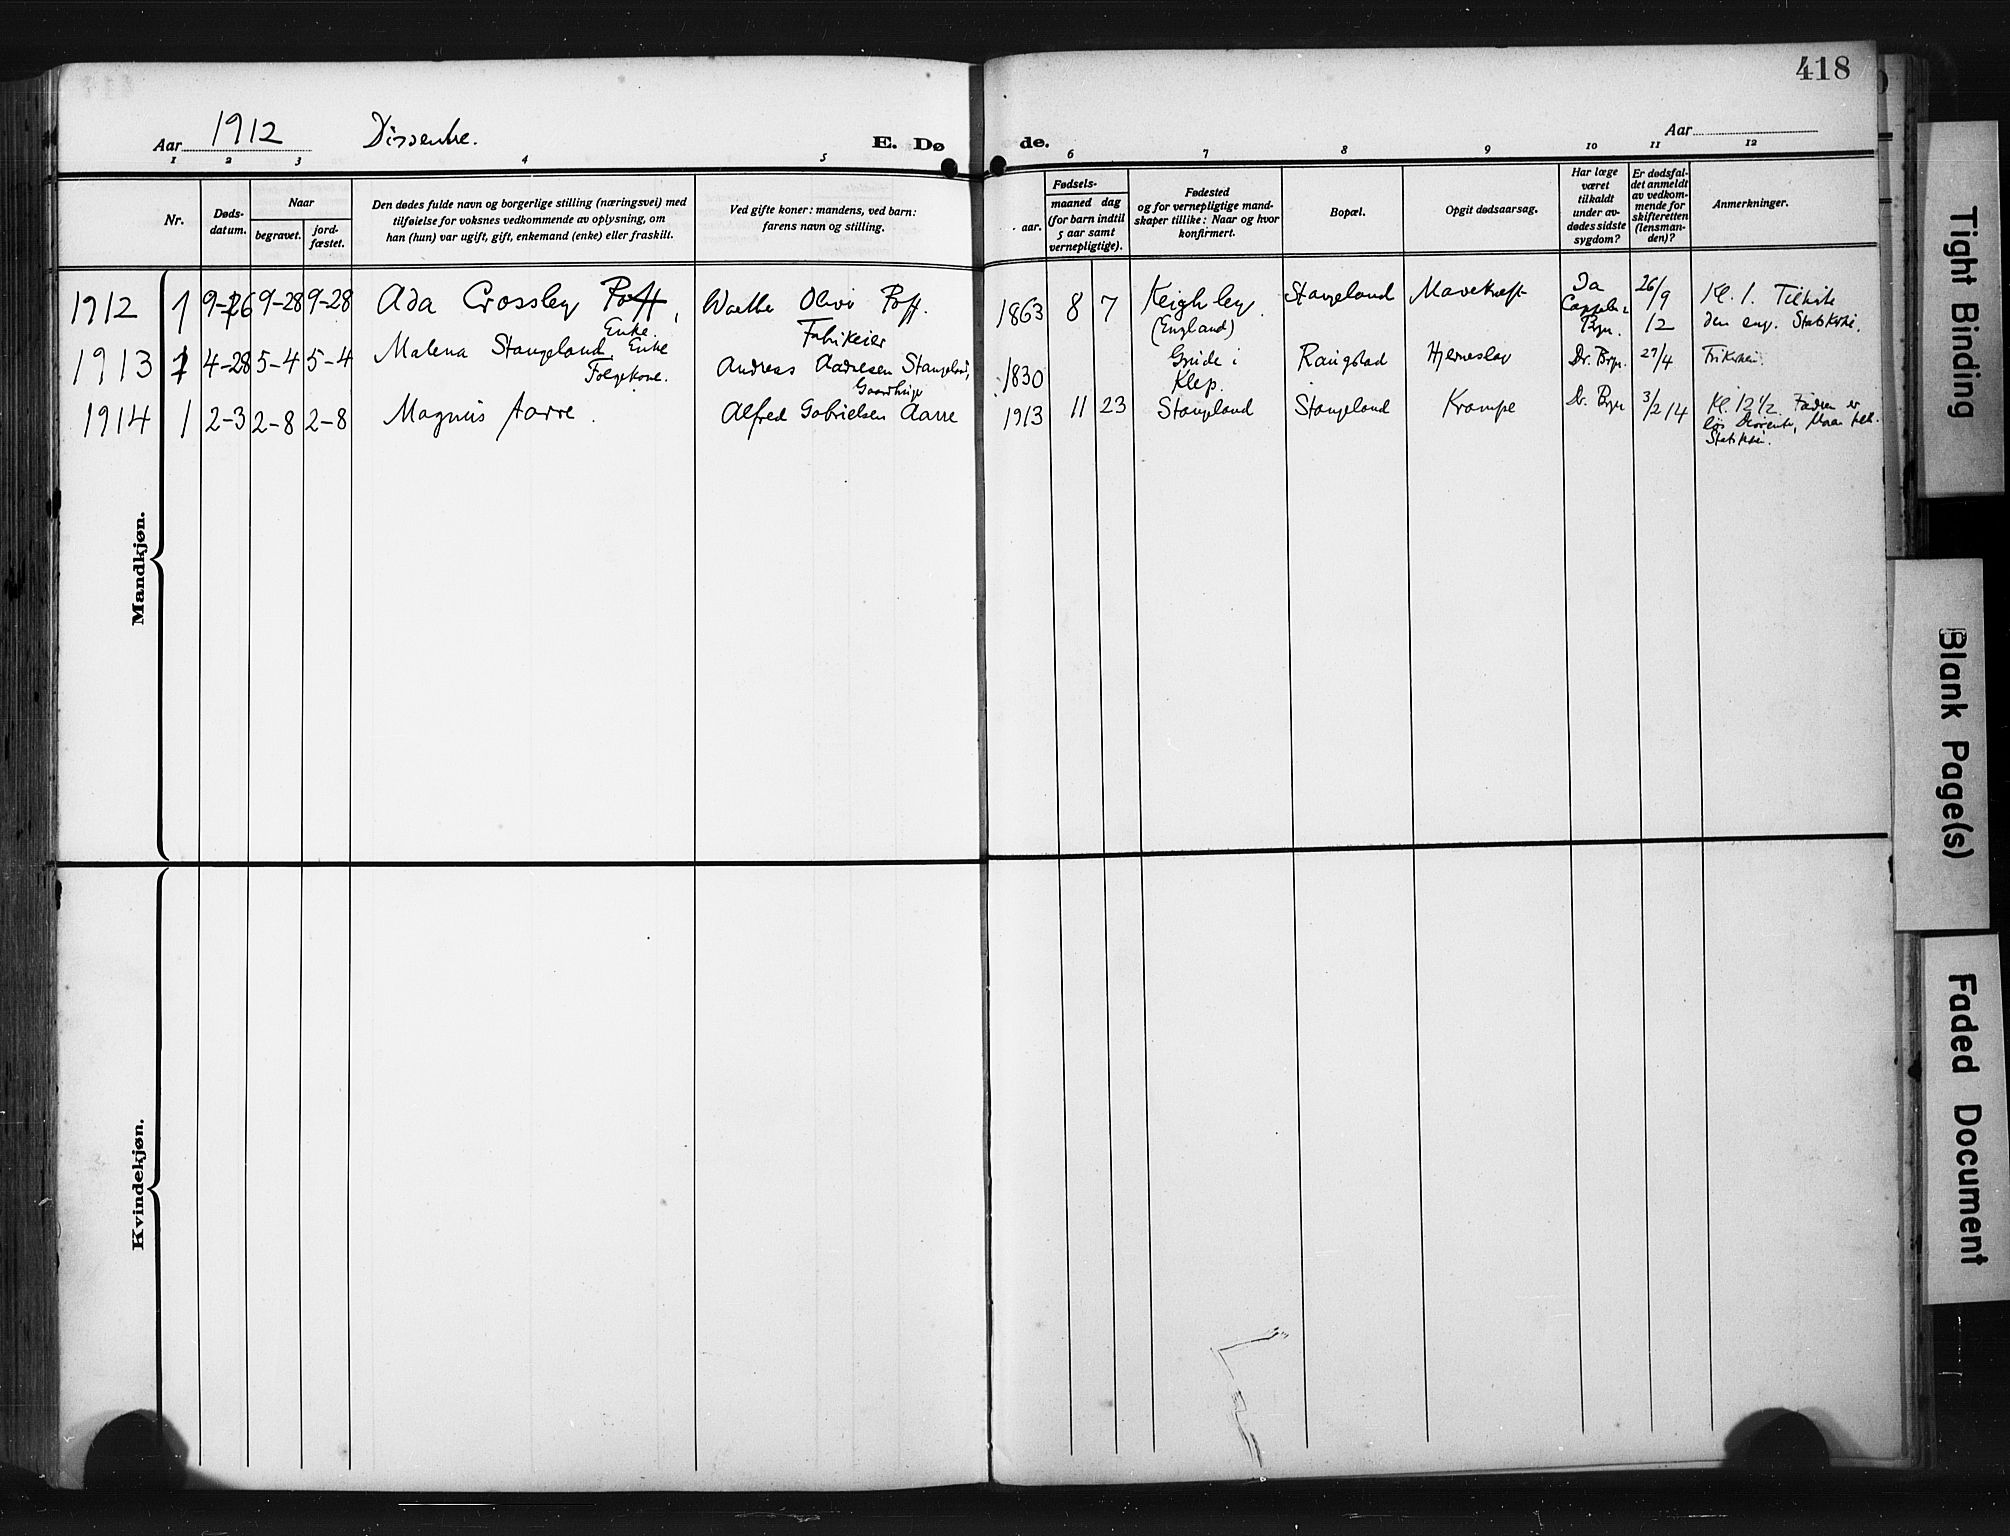 418
Aar 1912 Dissentere. E. Døde. Aar
1 2 3 4 5 6 7 8 9 10 11 12
Nr.
Døds-
datum.
Naar
begravet.
jord-
fæstet.
Den dødes fulde navn og borgerlige stilling (næringsvei) med
tilføielse for voksnes vedkommende av oplysning, om
han (hun) var ugift, gift, enkemand (enke) eller fraskilt.
Ved gifte koner: mandens, ved barn:
farens navn og stilling.
Fødsels-
aar.
maaned dag
(for barn indtil
5 aar samt
vernepligtige).
Fødested
og for vernepligtige mand-
skaper tillike: Naar og hvor
konfirmert.
Bopæl.
Opgit dødsaarsag.
Har læge
været
tilkaldt
under av-
dødes sidste
sygdom?
Er dødsfal-
det anmeldt
av vedkom-
mende for
skifteretten
(lensman-
den)?
Anmerkninger.
1912 1 9-26 9-28 9-28 Ada Crossley Poff, Enke. Walter Olivi Poff. Fabrikeier 1863 8 7 Keighley. (England) Stangeland Mavekræft Ja Cappelen Bryn. 26/9 12 Kl. 1. Tilhørte den eng. Statskirke.
1913 1 4-28 5-4 5-4 Malena Stangeland, Enke Følgekone. Andreas Aadnesen Stangeland, Gaardbruger 1830 Grude i Klep. Raugstad Hjerneslag Dr. Bryn 29/4 Frikirken.
1914 1 2-3 2-8 2-8 Magnus Aarre. Alfred Gabrielsen Aarre 1913 11 23 Stangeland Stangeland Krampe Dr. Bryn 3/2 14 Kl. 12 1/2. Faderen er løs Dissenter, Moren tilh. Statskirken.
Mandkjøn.
Kvindekjøn.
Tight Binding
Blank Page(s)
Faded Document